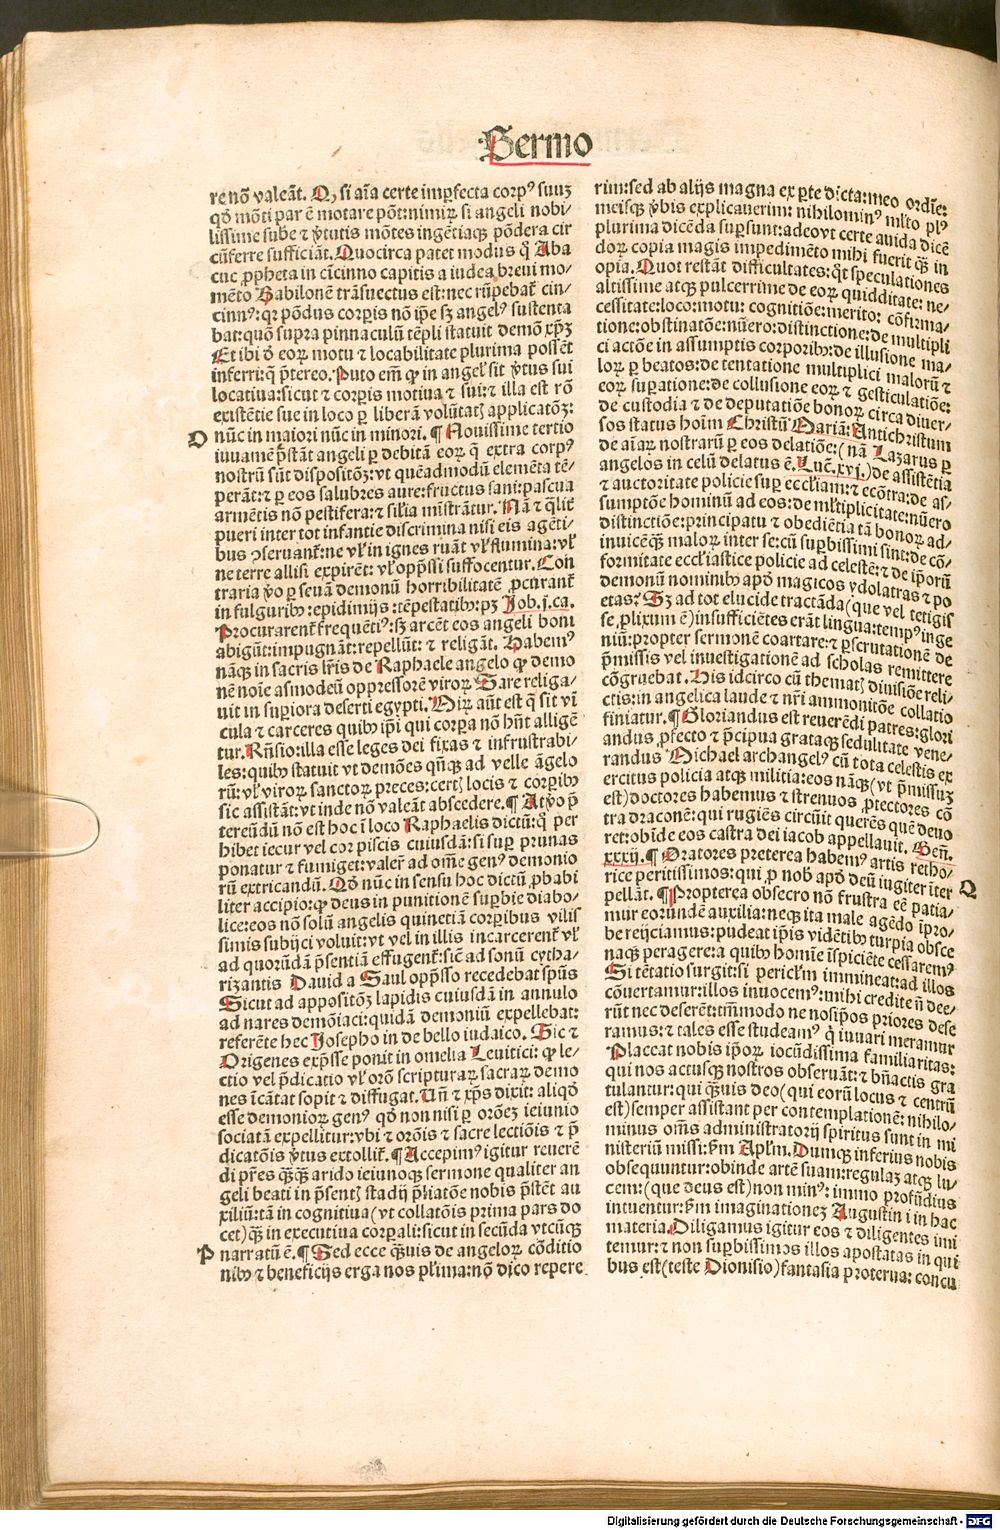 Sermo
re nō valeāt. Qꝫ si aīa certe imꝑfecta corpꝰ suuꝫ
qd̄ mōti par ē motare pōt: nimiꝝ si angeli nobi-
lissime sube ⁊ v̄tutis mōtes ingētiaqꝫ pōdera cir
cūferre sufficiāt. Quocirca patet modus q̄ Aba
cuc ꝓpheta in cīcinno capitis a iudea breui mo-
mēto Babilonē trāsuectus est: nec rūpebat̄ cin-
cinnꝰ: qꝛ pōdus corꝑis nō ip̄e sꝫ angelꝰ sustenta
bat: quō supra pinnaculū tēpli statuit demō xp̄ꝫ
Et ibi d̄ eoꝝ motu ⁊ locabilitate plurima possēt
inferri: q̄ p̄tereo. Puto em̄ ꝙ in angel̓ sit v̄tus sui
locatiua: sicut ⁊ corꝑis motiua ⁊ sui: ⁊ illa est rō
existētie sue in loco ꝑ liberā volūtatꝭ applicatōꝫ:
D nūc in maiori nūc in minori. ¶ Nouissime tertio
iuuamē p̄stāt angeli ꝑ debitā eoꝝ q̄ extra corpꝰ
nostrū sūt dispositōꝫ: vt queadmodū elemēta tē-
perāt: ⁊ ꝑ eos salubres aure: fructus sani: pascua
armētis nō pestifera: ⁊ sil̓ia mīstrātur. Nā ⁊ q̄lit̄
pueri inter tot infantie discrimina nisi eis agēti-
bus ↄseruant̄: ne vl̓ in ignes ruāt vl̓ flumina: vl̓
ne terre allisi expirēt: vl̓ opp̄ssi suffocentur. Con
traria v̄o ꝑ seuā demonū horribilitatē ꝓcurant̄
in fulguribꝰ: epidimijs: tēpestatibꝰ: pꝫ Job. j. ca.
Procurarent̄ frequētiꝰ: sꝫ arcēt eos angeli boni
abigūt: impugnāt: repellūt: ⁊ religāt. Habemꝰ
nāqꝫ in sacris lr̄is de Raphaele angelo ꝙ demo
nē noīe asmodeū oppressorē viroꝝ Sare religa-
uit in suꝑiora deserti egypti. Miꝝ aūt est q̄ sit vī
cula ⁊ carceres quibꝰ ip̄i qui corꝑa nō hn̄t alligē
tur. Rn̄sio: illa esse leges dei fixas ⁊ infrustrabi-
les: quibꝰ statuit vt demōes qn̄qꝫ ad velle āgelo
rū: vl̓ viroꝝ sanctoꝝ preces: certꝭ locis ⁊ corꝑibꝰ
sic assistāt: vt inde nō valeāt abscedere. ¶ At v̄o p̄
tereūdū nō est hoc ī loco Raphaelis dictū: q̄ per
hibet iecur vel cor piscis cuiusdā: si suꝑ prunas
ponatur ⁊ fumiget: valer̄ ad om̄e genꝰ demonio
rū extricandū. Qd̄ nūc in sensu hoc dictū ꝓbabi
liter accipio: ꝙ deus in punitionē suꝑbie diabo-
lice: eos nō solū angelis quinetiā corꝑibus vilis
simis subijci voluit: vt vel in illis incarcerent̄ vl̓
ad quorūdā p̄sentiā effugent̄: sic̄ ad sonū cytha-
rizantis Dauid a Saul opp̄sso recedebat sp̄us
Sicut ad appositōꝫ lapidis cuiusdā in annulo
ad nares demōiaci: quidā demoniū expellebat:
referēte hec Josepho in de bello iudaico. Sic ⁊
Origenes exp̄sse ponit in omelia Leuitici: ꝙ le-
ctio vel p̄dicatio vl̓ orō scripturaꝝ sacraꝝ demo
nes īcātat sopit ⁊ diffugat. Uñ ⁊ xp̄s dixit: aliqd̄
esse demonioꝝ genꝰ qd̄ non nisi ꝑ orōeꝫ ieiunio
sociatā expellitur: vbi ⁊ orōis ⁊ sacre lectiōis ⁊ p̄
dicatōis v̄tus extollit̄. ¶ Accepimꝰ igitur reuerē
di pr̄es q̄ꝫq̄ꝫ arido ieiunoqꝫ sermone qualiter an
geli beati in p̄sentꝭ stadij p̄liatōe nobis p̄stēt au
xiliū: tā in cognitiua (vt collatōis prima pars do
cet) q̄ꝫ in executiua corꝑali: sicut in secūda vtcūqꝫ
P narratū ē. ¶ Sed ecce q̄ꝫuis de angeloꝝ cōditio
nibꝰ ⁊ beneficijs erga nos pl̓ima: nō dico repere
rim: sed ab alijs magna ex ꝑte dicta: meo ordīe:
meisqꝫ v̄bis explicauerim: nihilominꝰ ml̓to plꝰ
plurima dicēda suꝑsunt: adeovt certe auida dicē
doꝝ copia magis impedimēto mihi fuerit q̄ꝫ in
opia. Quot restāt difficultates: q̄t speculationes
altissime atqꝫ pulcerrime de eoꝝ quidditate: ne-
cessitate: loco: motu: cognitiōe: merito: cōfirma-
tione: obstinatōe: nūero: distinctione: de multipli
ci actōe in assumptis corporibꝰ: de illusione ma-
loꝝ ꝑ beatos: de tentatione multiplici malorū ⁊
eoꝝ suꝑatione: de collusione eoꝝ ⁊ gesticulatiōe:
de custodia ⁊ de deputatiōe bonoꝝ circa diuer-
sos status hoīm Christū Mariā: Antichristum
de aīaꝝ nostrarū ꝑ eos delatiōe: (nā Lazarus ꝑ
angelos in celū delatus ē. Luc̄. xvj.) de assistētia
⁊ auctoritate policie suꝑ eccl̓iam: ⁊ ecōtra: de as-
sumptōe hominū ad eos: de ml̓tiplicitate: nūero
distinctiōe: principatu ⁊ obediētia tā bonoꝝ ad-
inuicē q̄ꝫ maloꝝ inter se: cū suꝑbissimi sint: de cō-
formitate eccl̓iastice policie ad celestē: ⁊ de ip̄orū
demonū nominibꝰ apd̄ magicos ydolatras ⁊ po
etas? Sꝫ ad tot elucide tractāda (que vel tetigis
se ꝓlixum ē) insufficiētes erāt lingua: tempꝰ inge
niū: propter sermonē coartare: ⁊ ꝑscrutationē de
p̄missis vel inuestigationē ad scholas remittere
cōgruebat. His idcirco cū thematꝭ diuisiōe reli-
ctis: in angelica laude ⁊ nr̄i ammonitōe collatio
finiatur. ¶ Gloriandus est reuerēdi patres: glori
andus ꝓfecto ⁊ p̄cipua grataqꝫ sedulitate vene-
randus Michael archangelꝰ cū tota celestis ex
ercitus policia atqꝫ militia: eos nāqꝫ (vt p̄missuꝫ
est) doctores habemus ⁊ strenuos ꝓtectores cō
tra draconē: qui rugiēs circūit querēs quē deuo
ret: obīde eos castra dei iacob appellauit. Gen̄.
xxxij. ¶ Oratores preterea habemꝰ artis retho-
rice peritissimos: qui ꝓ nob̄ apd̄ deū iugiter īter Q
pellāt. ¶ Propterea obsecro nō frustra eē patia-
mur eorūndē auxilia: neqꝫ ita male agēdo īpro-
be reijciamus: pudeat ip̄is vidētibꝰ turpia obsce
naqꝫ peragere: a quibꝰ homīe īspiciēte cessaremꝰ
Si tētatio surgit: si pericl̓m immineat: ad illos
cōuertamur: illos inuocemꝰ: mihi credite n̄ dee-
rūt nec deserēt: tm̄modo ne nosip̄os priores dese
ramus: ⁊ tales esse studeamꝰ q̄ iuuari meramur
Placeat nobis ip̄oꝝ iocūdissima familiaritas:
qui nos actusqꝫ nostros obseruāt: ⁊ bn̄actis gra
tulantur: qui q̄ꝫuis deo (qui eorū locus ⁊ centrū
est) semper assistant per contemplationē: nihilo-
minus om̄s administratorij spiritus sunt in mi
nisteriū missi: ẜm Apl̓m. Dumqꝫ inferius nobis
obsequuntur: obinde artē suam: regulaꝫ atqꝫ lu-
cem: (que deus est) non minꝰ: immo profūdius
intuentur: ẜm imaginationeꝫ Augustini in hac
materia. Diligamus igitur eos ⁊ diligentes imi
temur: ⁊ non suꝑbissimos illos apostatas in qui
bus est (teste Dionisio) fantasia proterua: concu
Digitalisierung gefördert durch die Deutsche Forschungsgemeinschaft - DFG